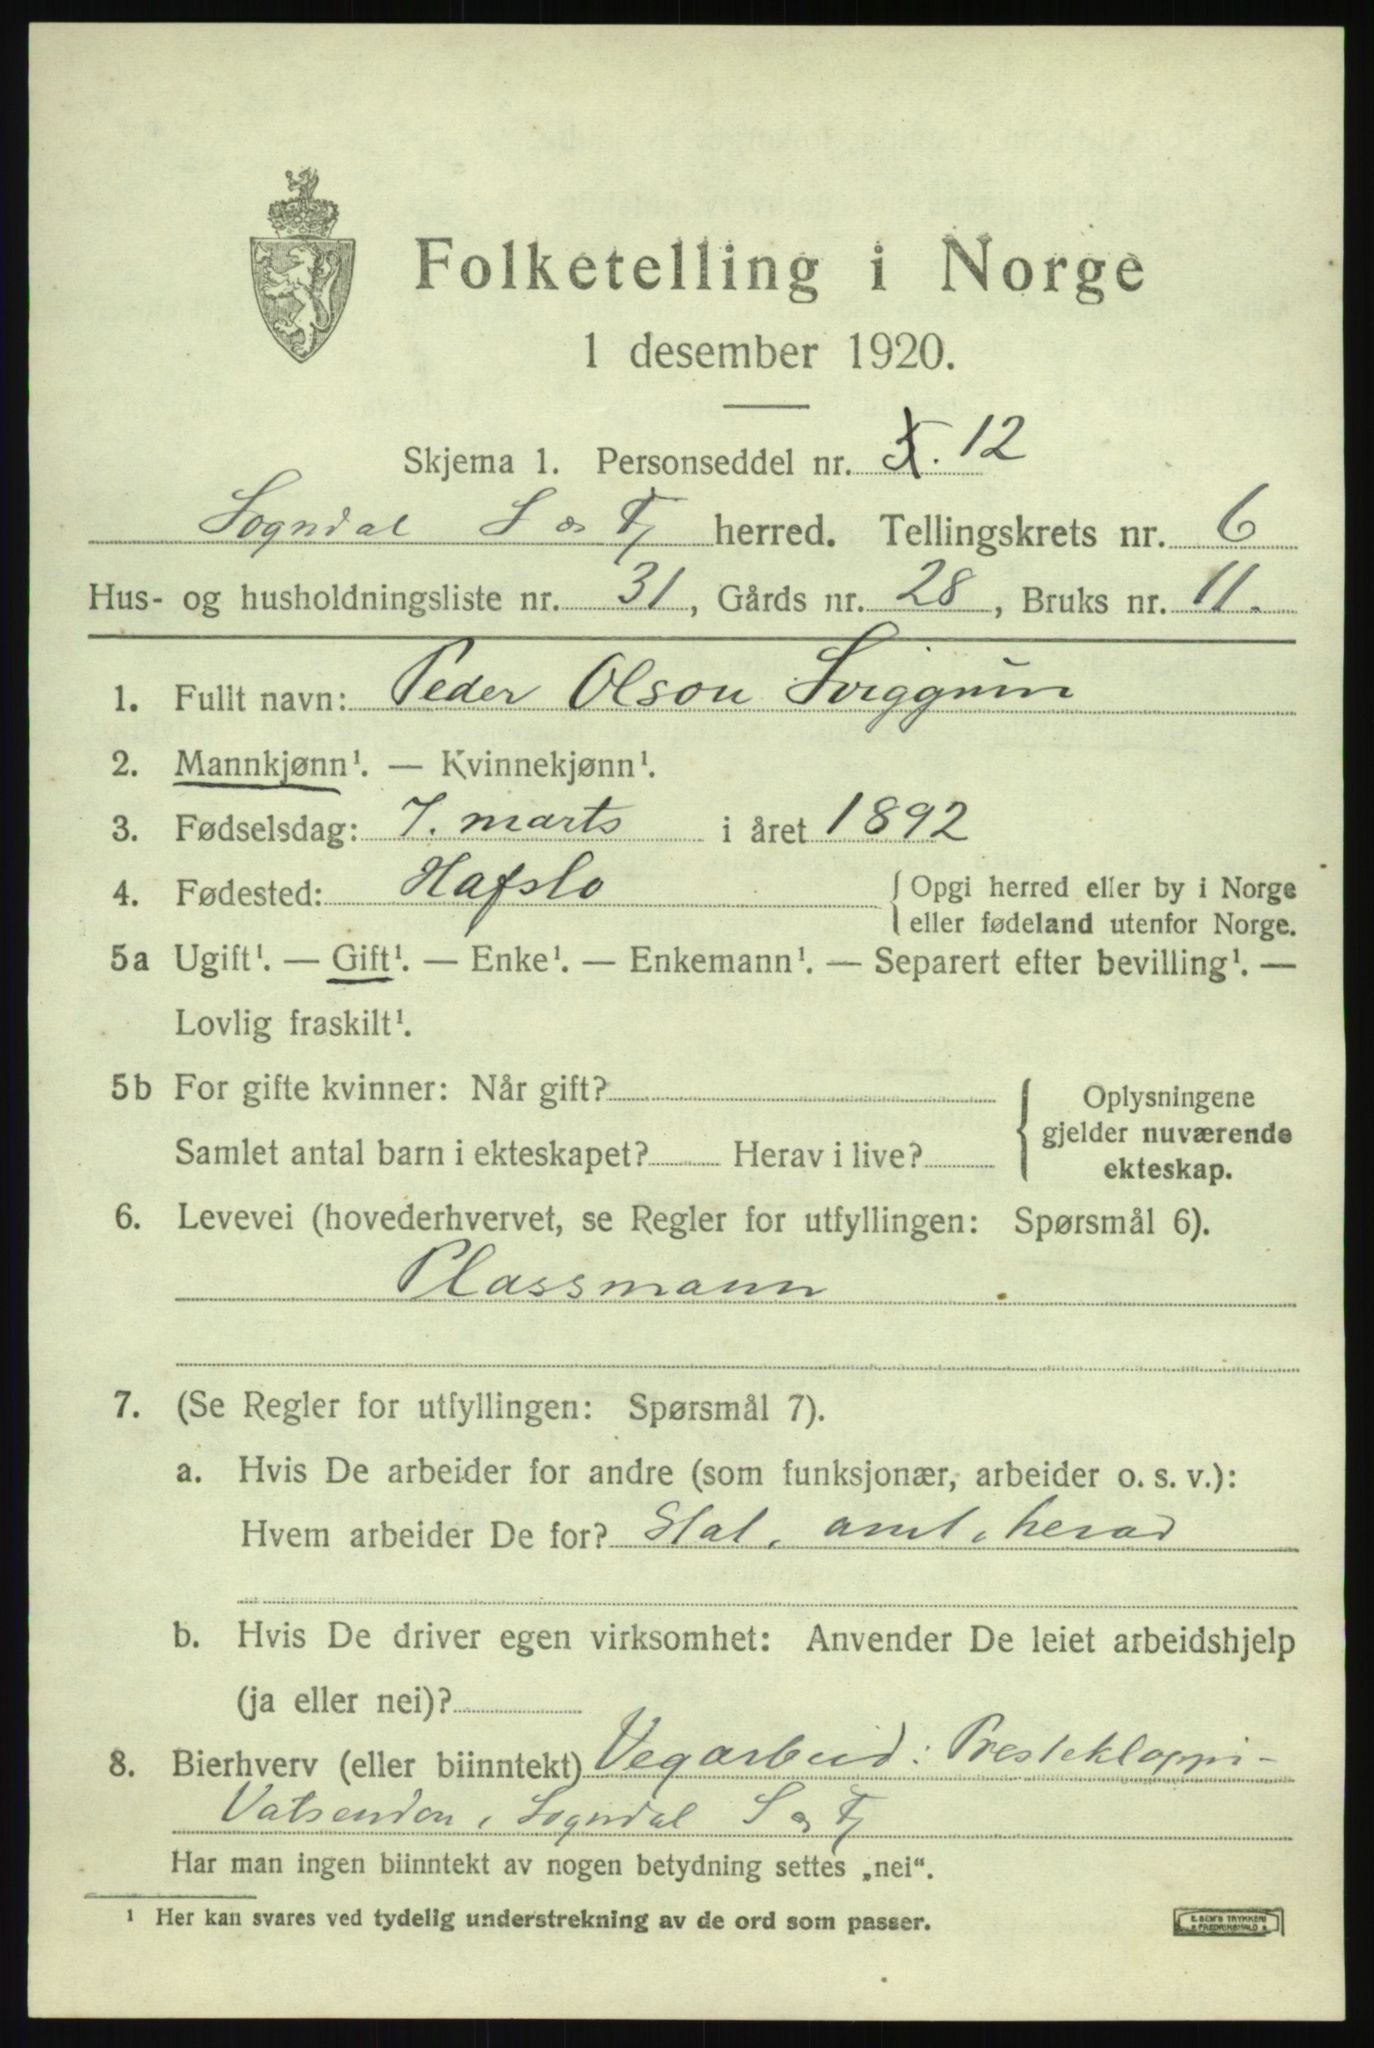 Folketelling i Norge
1 desember 1920.
Skjema 1. Personseddel nr. 12
Sogndal S os Fj herred. Tellingskrets nr. 6
Hus- og husholdningsliste nr. 31, Gårds nr. 28, Bruks nr. 11.
1. Fullt navn: Peder Olson Sviggum
2. Mannkjønn¹. — Kvinnekjønn¹.
3. Fødselsdag: 7. marts i året 1892
4. Fødested: Hafslo { Opgi herred eller by i Norge
eller fødeland utenfor Norge.
5a Ugift¹. — Gift¹. — Enke¹. — Enkemann¹. — Separert efter bevilling¹. —
Lovlig fraskilt¹.
5b For gifte kvinner: Når gift?
Samlet antal barn i ekteskapet? Herav i live?
{ Oplysningene
gjelder nuværende
ekteskap.
6. Levevei (hovederhvervet, se Regler for utfyllingen: Spørsmål 6).
Plassmann
7. (Se Regler for utfyllingen: Spørsmål 7).
a. Hvis De arbeider for andre (som funksjonær, arbeider o. s. v.):
Hvem arbeider De for? Stat, amt, herad
b. Hvis De driver egen virksomhet: Anvender De leiet arbeidshjelp
(ja eller nei)?
8. Bierhverv (eller biinntekt) Vegarbeid: Prestekloppi-
Vatsenden, Sogndal S os Fj
Har man ingen biinntekt av nogen betydning settes „nei“.
¹ Her kan svares ved tydelig understrekning av de ord som passer.
E. SEM'S TRYKKERI
FREDRIKSHALD